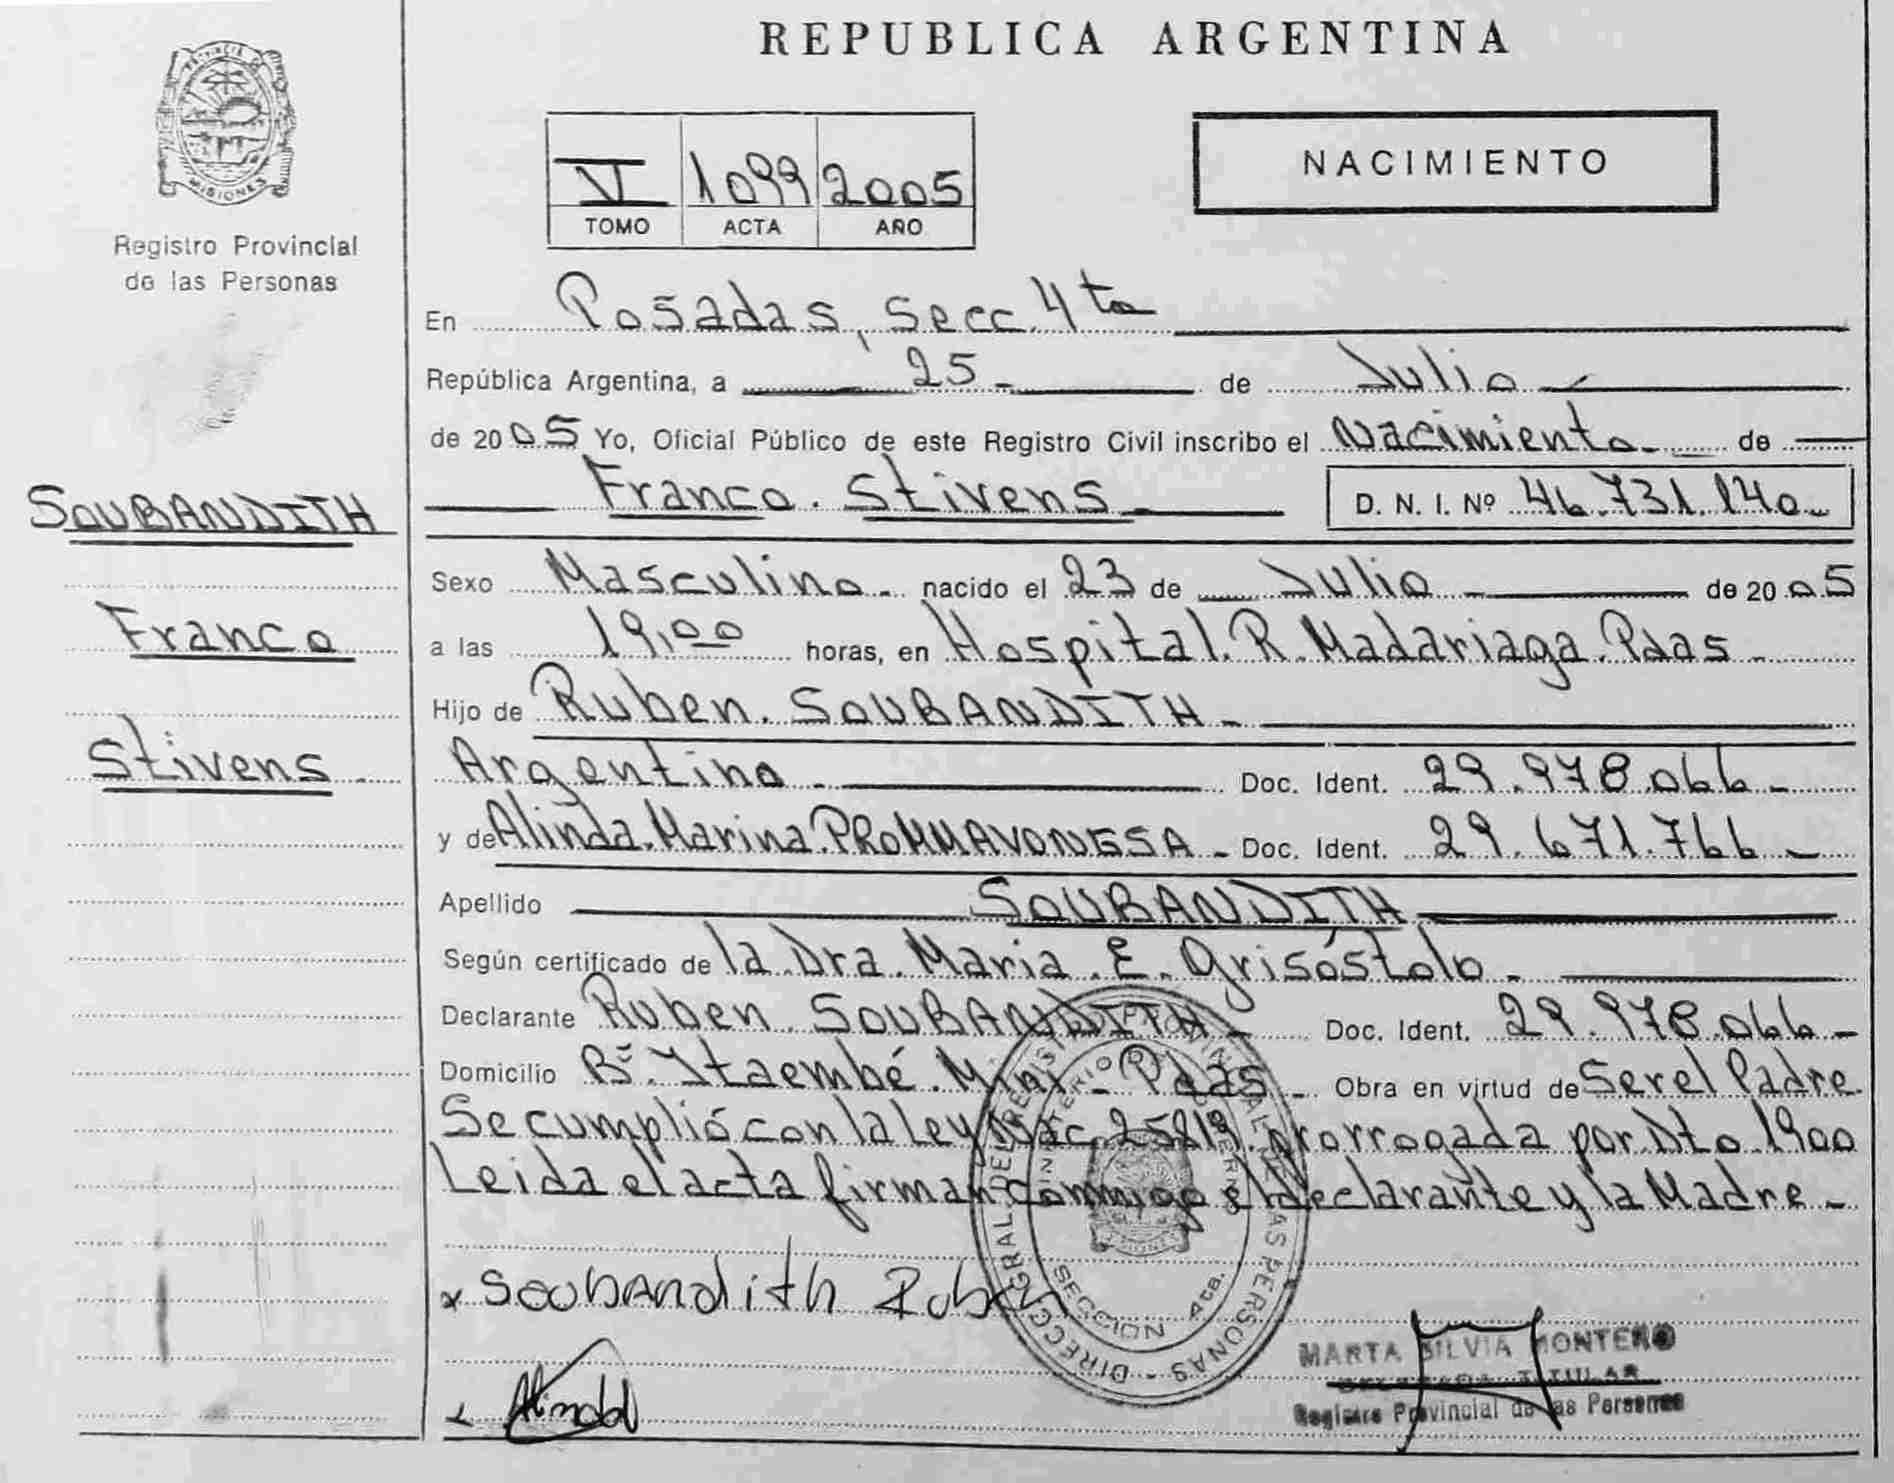 PROVINCIA DE
MISIONES
Registro Provincial
de las Personas
SOUBANDITH
Franco
Stivens
REPUBLICA ARGENTINA
V 1099 2005
TOMO ACTA AÑO
NACIMIENTO
En Posadas, Secc. 4ta
República Argentina, a 25 de Julio
de 2005 Yo, Oficial Público de este Registro Civil inscribo el Nacimiento de
Franco. Stivens D. N. I. Nº 46.731.140
Sexo Masculino nacido el 23 de Julio de 2005
a las 19,00 horas, en Hospital. R. Madariaga. Pdas
Hijo de Ruben. SOUBANDITH
Argentino Doc. Ident. 29.978.066
y de Alinda. Marina. PROMMAVONGSA Doc. Ident. 29.671.766
Apellido SOUBANDITH
Según certificado de la Dra. Maria. E. Grisóstolo
Declarante Ruben. SOUBANDITH Doc. Ident. 29.978.066
Domicilio Bº. Itaembé. Mini - Pdas Obra en virtud de Ser el Padre.
Se cumplió con la ley Nac. 25819. prorrogada por. Dto. 1900
Leida el acta firman conmigo el declarante y la Madre
x Soubandith Ruben
Alinda
DIRECC. GRAL. DEL REGISTRO PROVINCIAL DE LAS PERSONAS
MINISTERIO DE GOBIERNO
SECCION 4ta.
MISIONES
MARTA SILVIA MONTERO
DELEGADA TITULAR
Registro Provincial de las Personas